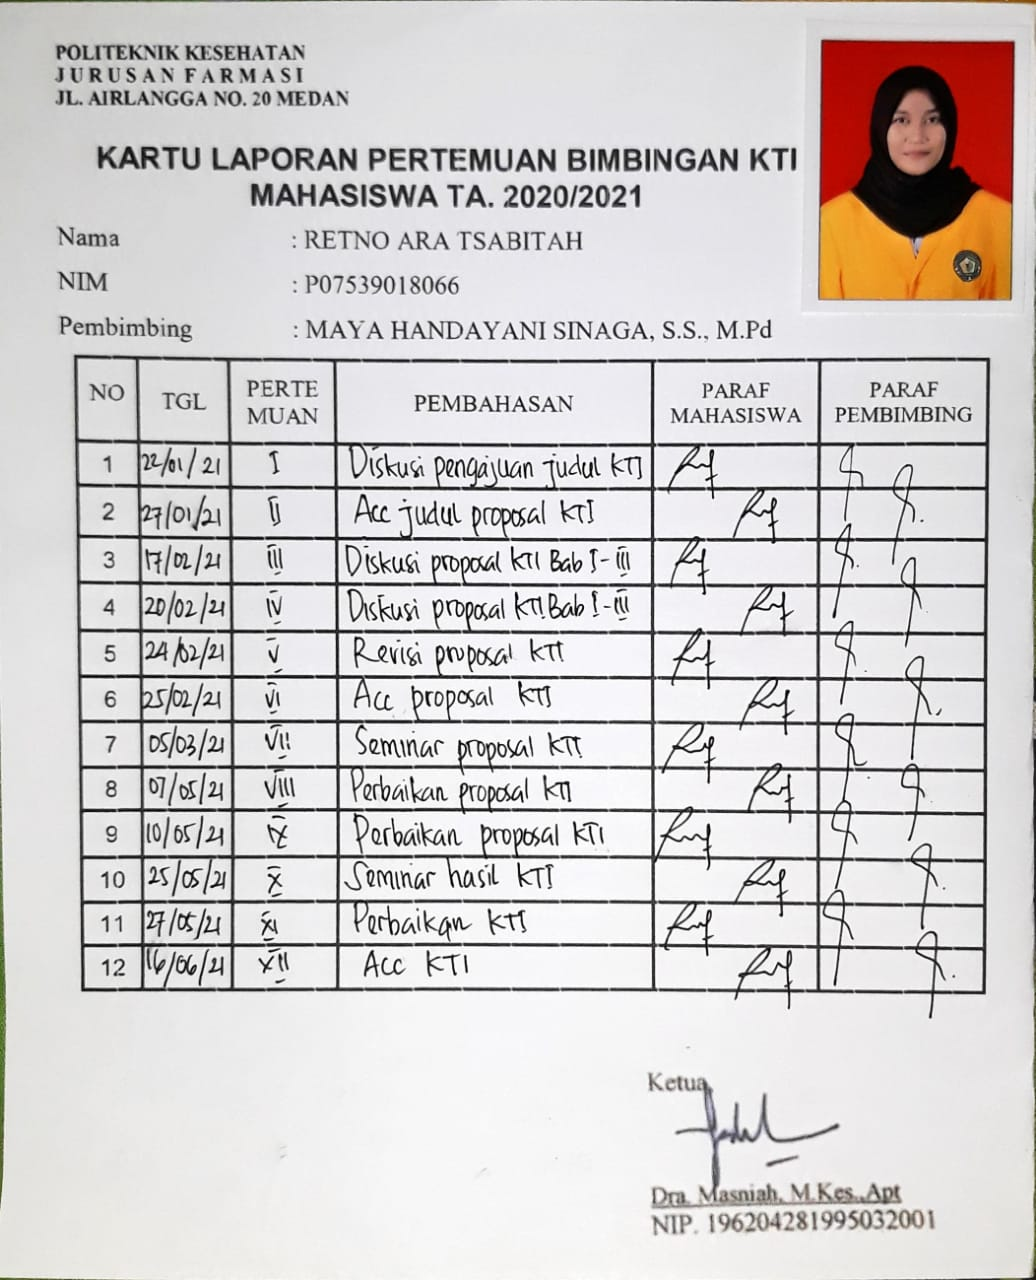 POLITEKNIK KESEHATAN
JURUSAN FARMASI
JL. AIRLANGGA NO. 20 MEDAN
KARTU LAPORAN PERTEMUAN BIMBINGAN KTI
MAHASISWA TA. 2020/2021
Nama : RETNO ARA TSABITAH
NIM : P07539018066
Pembimbing : MAYA HANDAYANI SINAGA, S.S., M.Pd
NO TGL PERTE MUAN PEMBAHASAN PARAF MAHASISWA PARAF PEMBIMBING
1 22/01/21 I Diskusi pengajuan judul KTI
2 27/01/21 II Acc judul proposal KTI
3 17/02/21 III Diskusi proposal KTI Bab I-III
4 20/02/21 IV Diskusi proposal KTI Bab I-III
5 24/02/21 V Revisi proposal KTI
6 25/02/21 VI Acc proposal KTI
7 05/03/21 VII Seminar proposal KTI
8 07/05/21 VIII Perbaikan proposal KTI
9 10/05/21 IX Perbaikan proposal KTI
10 25/05/21 X Seminar hasil KTI
11 27/05/21 XI Perbaikan KTI
12 16/06/21 XII Acc KTI
Ketua
Dra. Masniah, M.Kes.,Apt
NIP. 196204281995032001